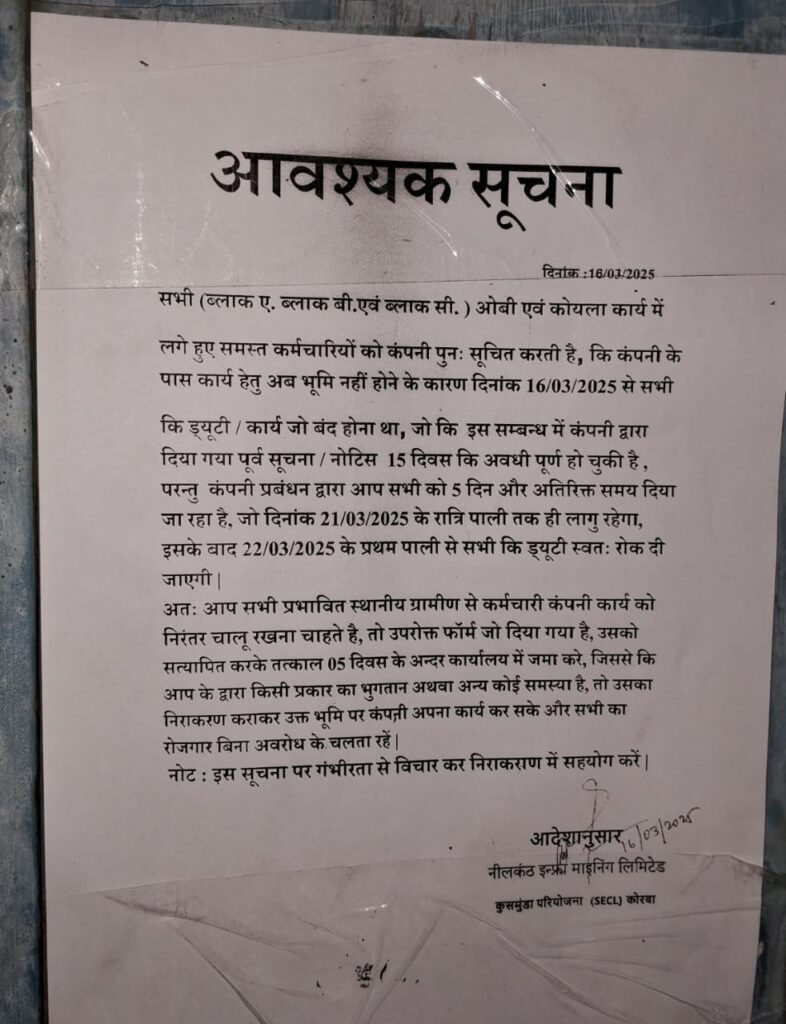 आवश्यक सूचना
दिनांक :16/03/2025
सभी (ब्लाक ए. ब्लाक बी.एवं ब्लाक सी. ) ओबी एवं कोयला कार्य में
लगे हुए समस्त कर्मचारियों को कंपनी पुनः सूचित करती है, कि कंपनी के
पास कार्य हेतु अब भूमि नहीं होने के कारण दिनांक 16/03/2025 से सभी
कि ड्यूटी / कार्य जो बंद होना था, जो कि इस सम्बन्ध में कंपनी द्वारा
दिया गया पूर्व सूचना / नोटिस 15 दिवस कि अवधी पूर्ण हो चुकी है ,
परन्तु कंपनी प्रबंधन द्वारा आप सभी को 5 दिन और अतिरिक्त समय दिया
जा रहा है, जो दिनांक 21/03/2025 के रात्रि पाली तक ही लागु रहेगा,
इसके बाद 22/03/2025 के प्रथम पाली से सभी कि ड्यूटी स्वतः रोक दी
जाएगी |
अतः आप सभी प्रभावित स्थानीय ग्रामीण से कर्मचारी कंपनी कार्य को
निरंतर चालू रखना चाहते है, तो उपरोक्त फॉर्म जो दिया गया है, उसको
सत्यापित करके तत्काल 05 दिवस के अन्दर कार्यालय में जमा करे, जिससे कि
आप के द्वारा किसी प्रकार का भुगतान अथवा अन्य कोई समस्या है, तो उसका
निराकरण कराकर उक्त भूमि पर कंपनी अपना कार्य कर सके और सभी का
रोजगार बिना अवरोध के चलता रहें |
नोट : इस सूचना पर गंभीरता से विचार कर निराकराण में सहयोग करें |
आदेशानुसार 16/03/2025
नीलकंठ इन्फ्रा माइनिंग लिमिटेड
कुसमुंडा परियोजना (SECL) कोरबा